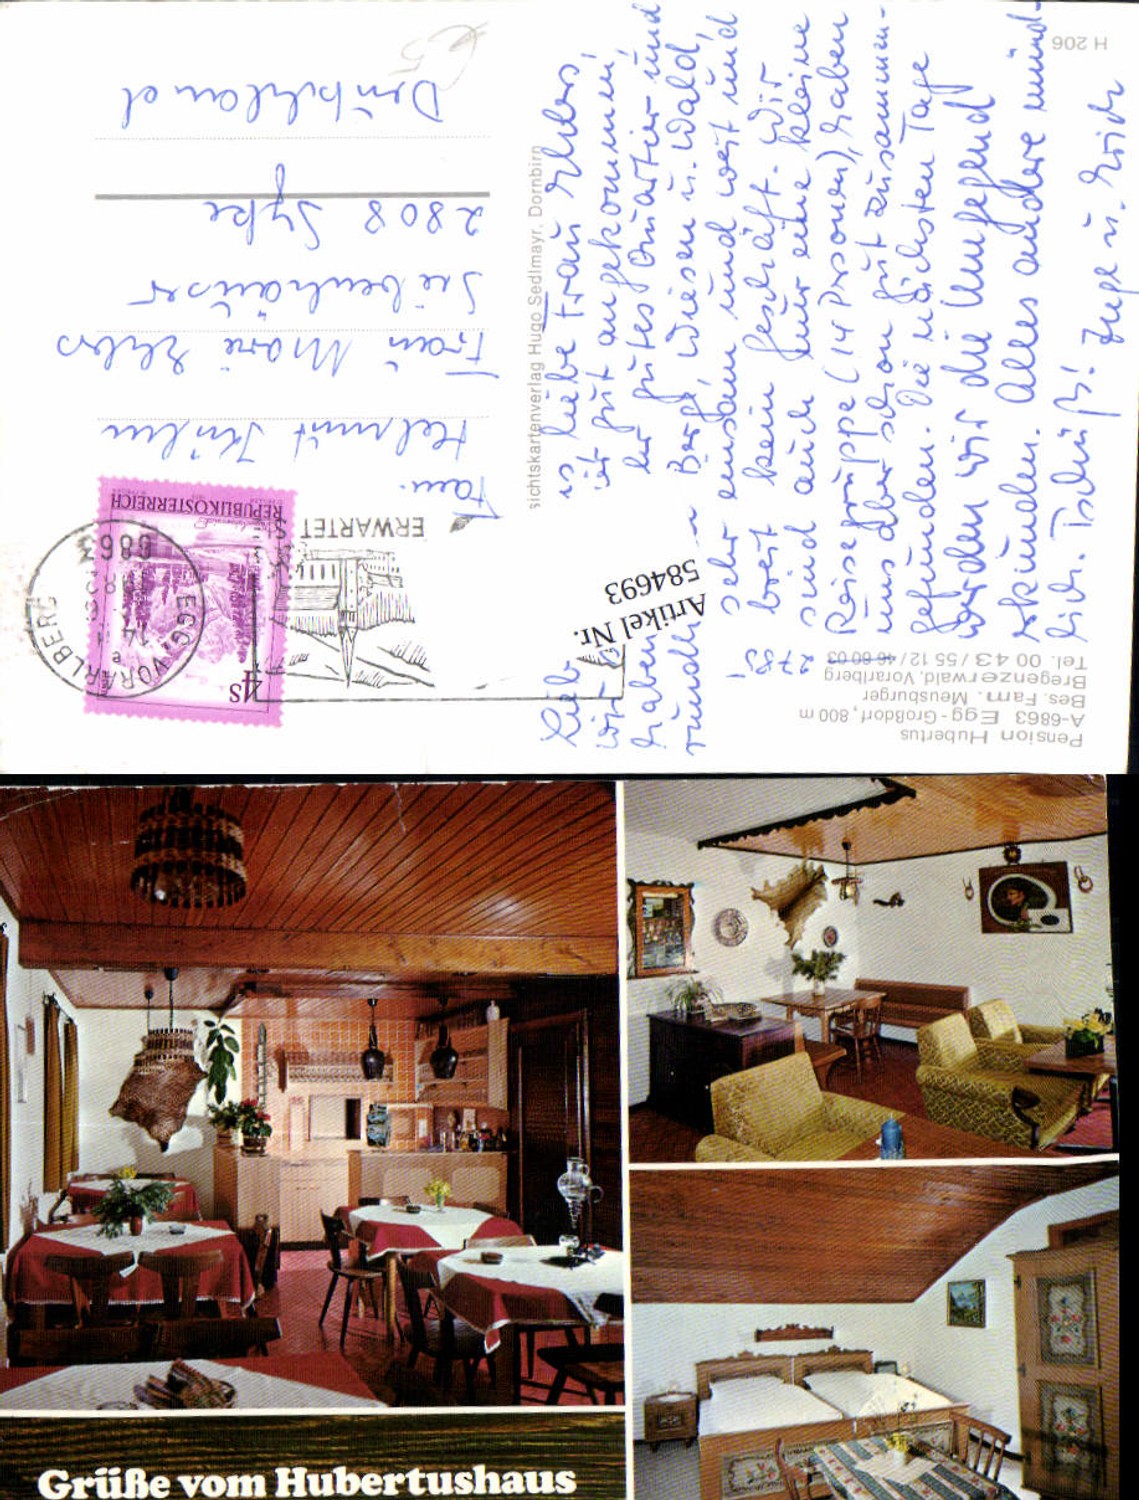 Pension Hubertus
A-6863 Egg-Großdorf, 800 m
Bes. Fam. Meusburger
Bregenzerwald, Vorarlberg
Tel. 00 43 / 55 12 / 46 60 03
2785
H 206
Artikel Nr.
584693
sichtskartenverlag Hugo Sedlmayr, Dornbirn
liebe Frau Ehlers,
wir gut angekommen,
haben gutes Quartier und
rundh Berge, Wiesen u. Wald,
sehr einsam und weit und
breit kein Geschäft. Wir
sind auch nur eine kleine
Reisegruppe (14 Personen), haben
uns aber schon gut zusammen-
gefunden. Die nächsten Tage
werden wir die Umgegend
erkunden. Alles andere münd-
lich. Tschüß!
Inge u. Erich
4S
REPUBLIK ÖSTERREICH
EGG, VORARLBERG
6863
ERWARTET
Fam.
Helmut
Frau Marie Ehlers
Siebenhäuser
2808 Syke
Deutschland
Grüße vom Hubertushaus